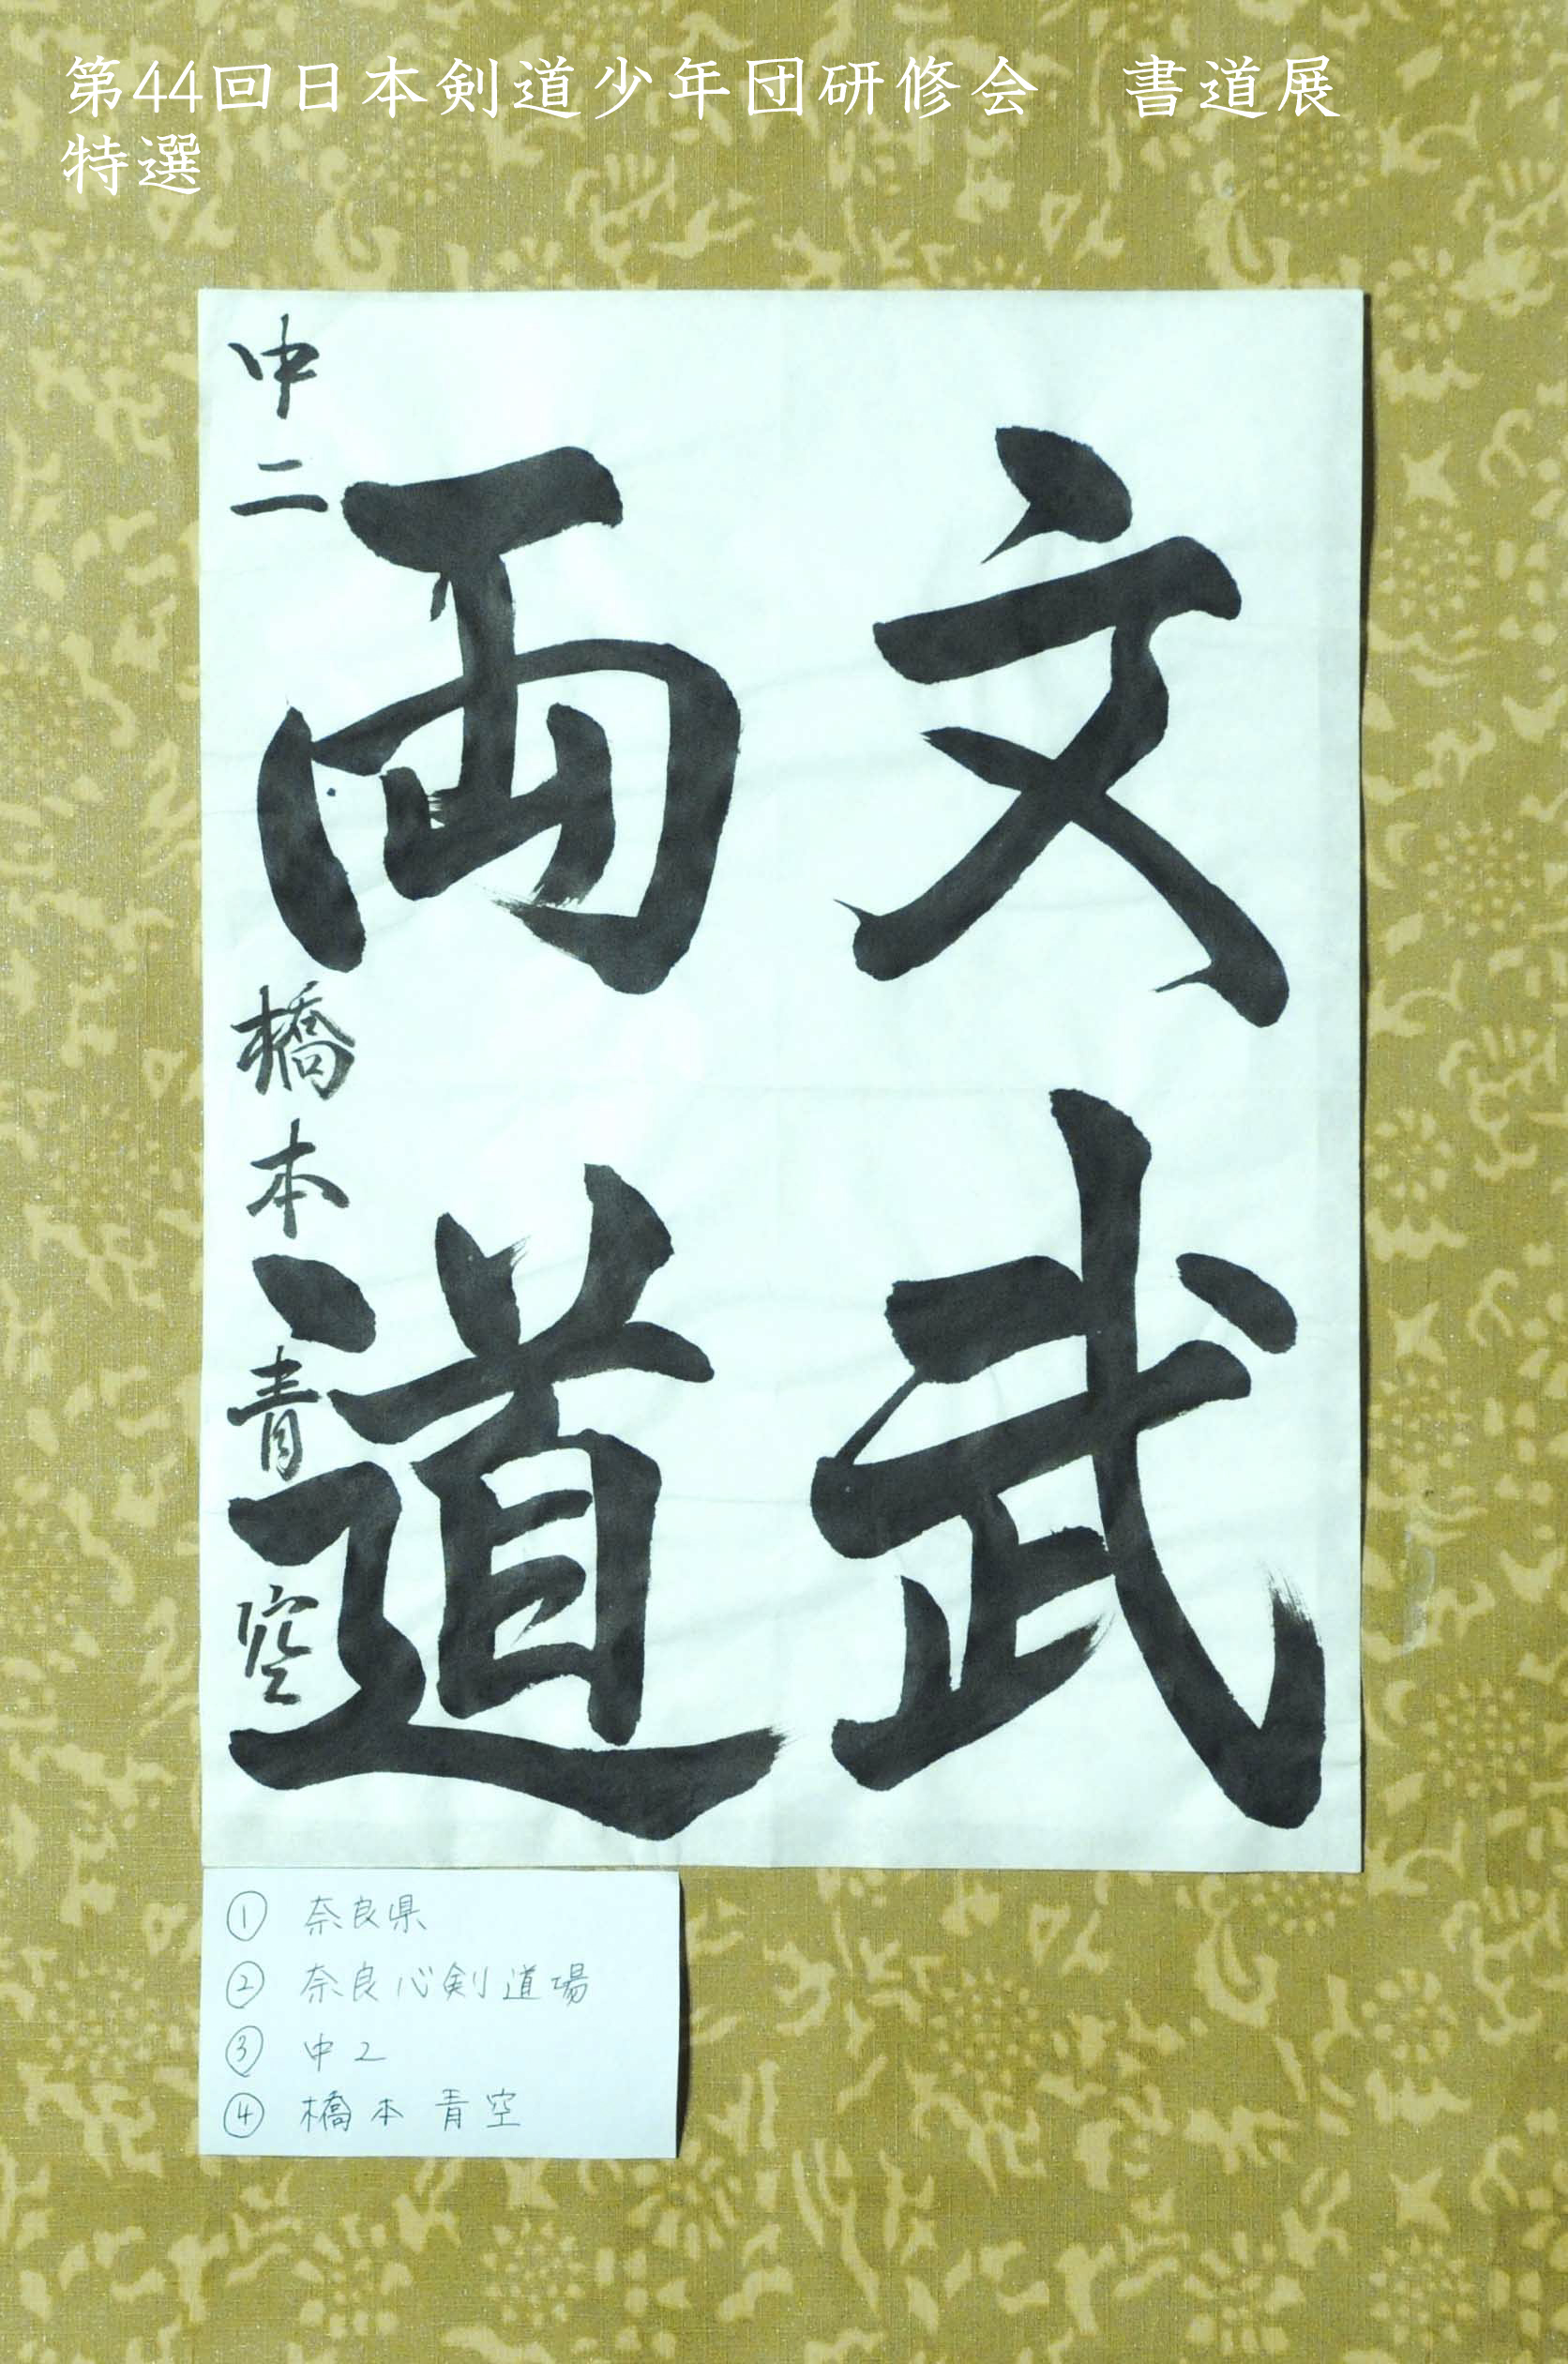 第44回日本剣道少年団研修会　書道展
特選
文武
両道
中二 橋本青空
① 奈良県
② 奈良心剣道場
③ 中2
④ 橋本青空